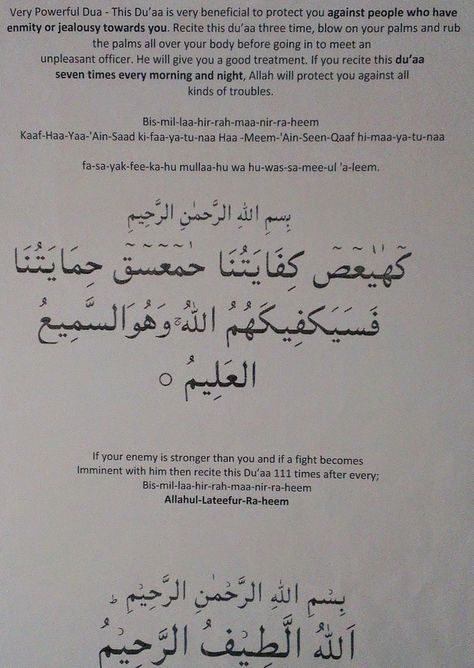 Very Powerful Dua - This Du'aa is very beneficial to protect you against people who have
enmity or jealousy towards you. Recite this du'aa three time, blow on your palms and rub
the palms all over your body before going in to meet an
unpleasant officer. He will give you a good treatment. If you recite this du'aa
seven times every morning and night, Allah will protect you against all
kinds of troubles.
Bis-mil-laa-hir-rah-maa-nir-ra-heem
Kaaf-Haa-Yaa-'Ain-Saad ki-faa-ya-tu-naa Haa -Meem-'Ain-Seen-Qaaf hi-maa-ya-tu-naa
fa-sa-yak-fee-ka-hu mullaa-hu wa hu-was-sa-mee-ul 'a-leem.
بِسْمِ اللهِ الرَّحْمٰنِ الرَّحِيْمِ
كٓهٰيٰعٓصٓ كِفَايَتُنَا حٰمٓعٓسٓقٓ حِمَايَتُنَا
فَسَيَكْفِيكَهُمُ اللهُ ۚ وَهُوَ السَّمِيعُ
العَلِيمُ ○
If your enemy is stronger than you and if a fight becomes
Imminent with him then recite this Du'aa 111 times after every;
Bis-mil-laa-hir-rah-maa-nir-ra-heem
Allahul-Lateefur-Ra-heem
بِسْمِ اللهِ الرَّحْمٰنِ الرَّحِيْمِ ؕ
اَللهُ الَّطِيْفُ الرَّحِيْمُ